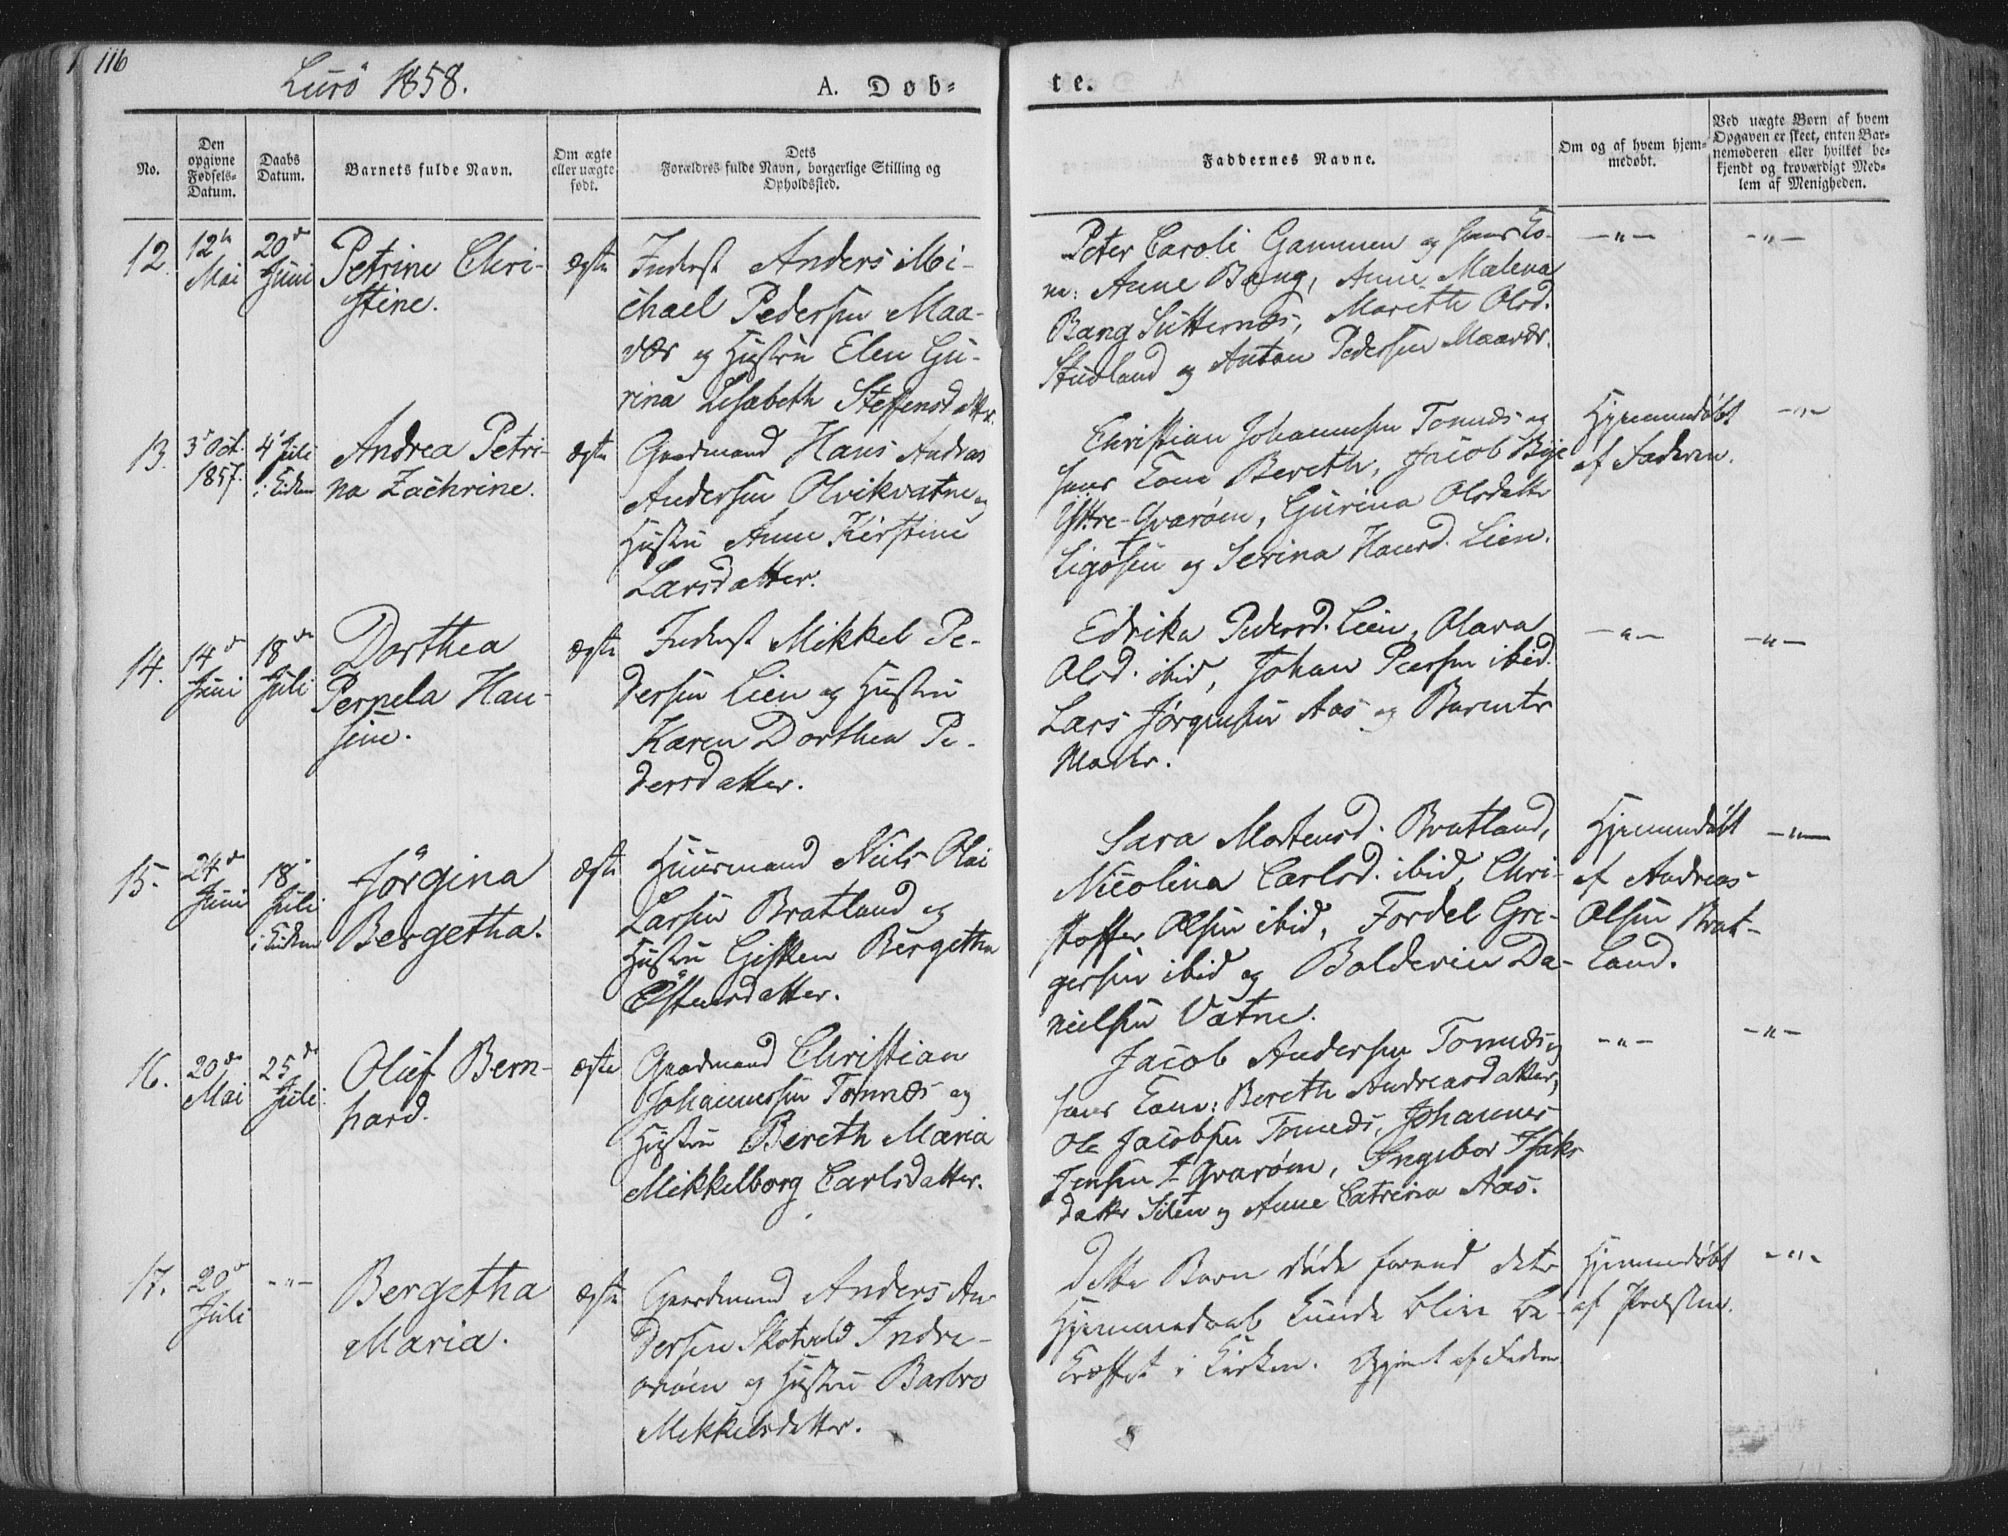 116
Lurö 1858.
A. Døb-
te.
No.
Den opgivne Fødsels-Datum.
Daabs Datum.
Barnets fulde Navn.
Om ægte eller uægte født.
Dets Forældres fulde Navn, borgerlige Stilling og Opholdssted.
Faddernes Navne.
Om og af hvem hjemmedøbt.
Ved uægte Børn af hvem Opgaven er skeet, enten Barnemoderen eller hvilket bekjendt og troværdigt Medlem af Menigheden.
12.
12te Mai
20de Juni
Petrine Chri-
stine.
ægte
Inderst Anders Mi-
chael Pedersen Maa-
vær og Hustru Elen Gu-
rina Lisabeth Steffensdatter.
Peter Caroli Gammen og hans Ko-
ne: Anne Bang, Anne Malena
Bang Sutternæs, Mareth Olsd.
Studland og Anton Pedersen Maavær.
— " —
— " —
13.
3' Oct. 1857.
4' Juli i Kirken
Andrea Petri-
na Zachrine.
ægte
Gaardmand Hans Andreas
Andersen Olvikvatne og
Hustru Anne Kirstine
Larsdatter.
Christian Johannesen Tonnes og
hans Kone Bereth, Jacob
Yttre-Qvarøen, Gurina Olsdatter
og Serina Hansd. Lien.
Hjemmedøbt
af Faderen.
— " —
14.
14de Juni
18de Juli
Dorthea
Pernela Han-
sine.
ægte
Inderst Mikkel Pe-
dersen Lien og Hustru
Karen Dorthea Pe-
dersdatter.
Edrika Pedersd. Lien, Olava
Olsd. ibid, Johan Peersen ibid.
Lars Jørgensen Aas og Barnets
Moder.
— " —
— " —
15.
24de Juni
18' Juli i Kirken
Jørgina
Bergetha.
ægte
Huusmand Niels Olai
Larsen Bratland og
Hustru Gisken Bergetha
Östensdatter.
Sara Mortensd. Bratland,
Nicolina Carlsd. ibid, Chri-
stoffer Olsen ibid, Fordel Gre-
gersen ibid og Balderin Da-
nielsen Vatne.
Hjemmedøbt
af Andreas
Olsen Brat-
land.
— " —
16.
20de Mai
25de Juli
Oluf Bern-
hard.
ægte
Gaardmand Christian
Johannesen Tonnes og
Hustru Bereth Maria
Mikkelborg Carlsdatter.
Jacob Andersen Tonnes og
hans Kone: Bereth Andreasdatter,
Ole Jacobsen Tonnes, Johannes
Jensen Y Qvarøen, Ingebor Isaks-
datter Silen og Anne Catrina Aas.
— " —
— " —
17.
20de Juli
— " —
Bergetha
Maria.
ægte
Gaardmand Anders An-
dersen Indre-
qvarøen og Hustru Barbro
Mikkelsdatter.
Dette Barn døde forend dets
Hjemmedaab kunde blive be-
kræftet i Kirken. af Faderen
Hjemmedøbt
af Præsten.
— " —